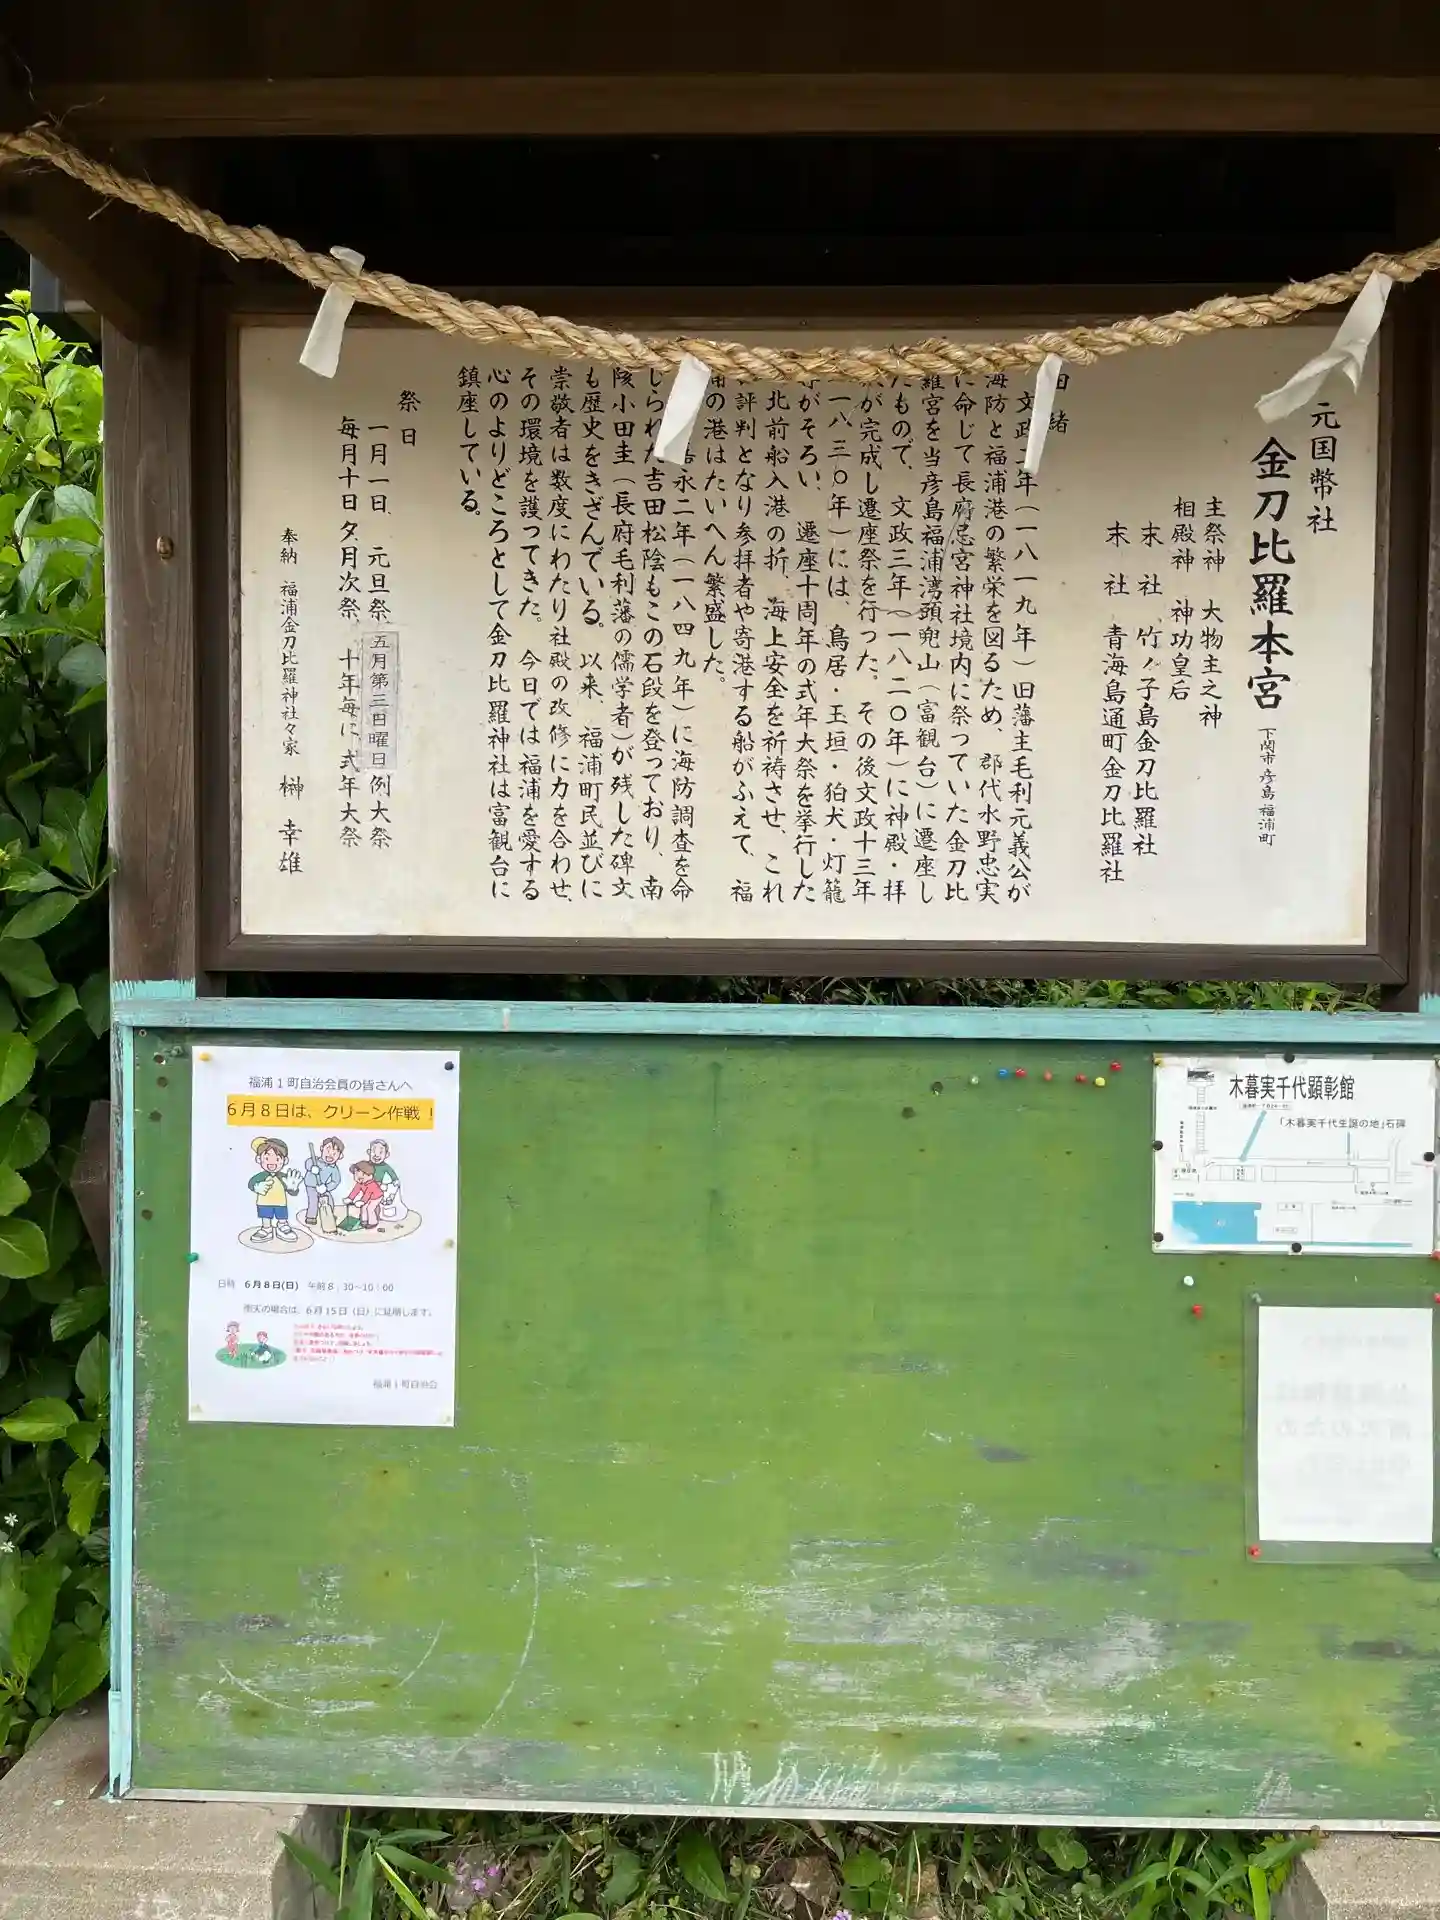 元国幣社
金刀比羅本宮 下関市彦島福浦町
主祭神 大物主之神
相殿神 神功皇后
末社 竹ノ子島金刀比羅社
末社 青海島通町金刀比羅社
緒
文政二年(一八一九年)旧藩主毛利元義公が
海防と福浦港の繁栄を図るため、郡代水野忠実
に命じて長府忌宮神社境内に祭っていた金刀比
羅宮を当彦島福浦湾頭兜山(富観台)に遷座し
たもので、文政三年(一八二〇年)に神殿・拝
が完成し遷座祭を行った。その後文政十三年
一八三〇年)には、鳥居・玉垣・狛犬・灯籠
等がそろい、遷座十周年の式年大祭を挙行した
北前船入港の折、海上安全を祈祷させ、これ
評判となり参拝者や寄港する船がふえて、福
浦の港はたいへん繁盛した。
永二年(一八四九年)に海防調査を命
じられた吉田松陰もこの石段を登っており、南
陔小田圭(長府毛利藩の儒学者)が残した碑文
も歴史をきざんでいる。以来、福浦町民並びに
崇敬者は数度にわたり社殿の改修に力を合わせ、
その環境を護ってきた。今日では福浦を愛する
心のよりどころとして金刀比羅神社は富観台に
鎮座している。
祭日
一月一日 元旦祭 五月第三日曜日例大祭
毎月十日夕月次祭 十年毎に式年大祭
奉納 福浦金刀比羅神社々家 榊 幸雄
福浦1町自治会員の皆さんへ
6月8日は、クリーン作戦!
日時 6月8日(日) 午前8:30~10:00
雨天の場合は、6月15日(日)に延期します。
福浦1町自治会
木暮実千代顕彰館
「木暮実千代生誕の地」石碑